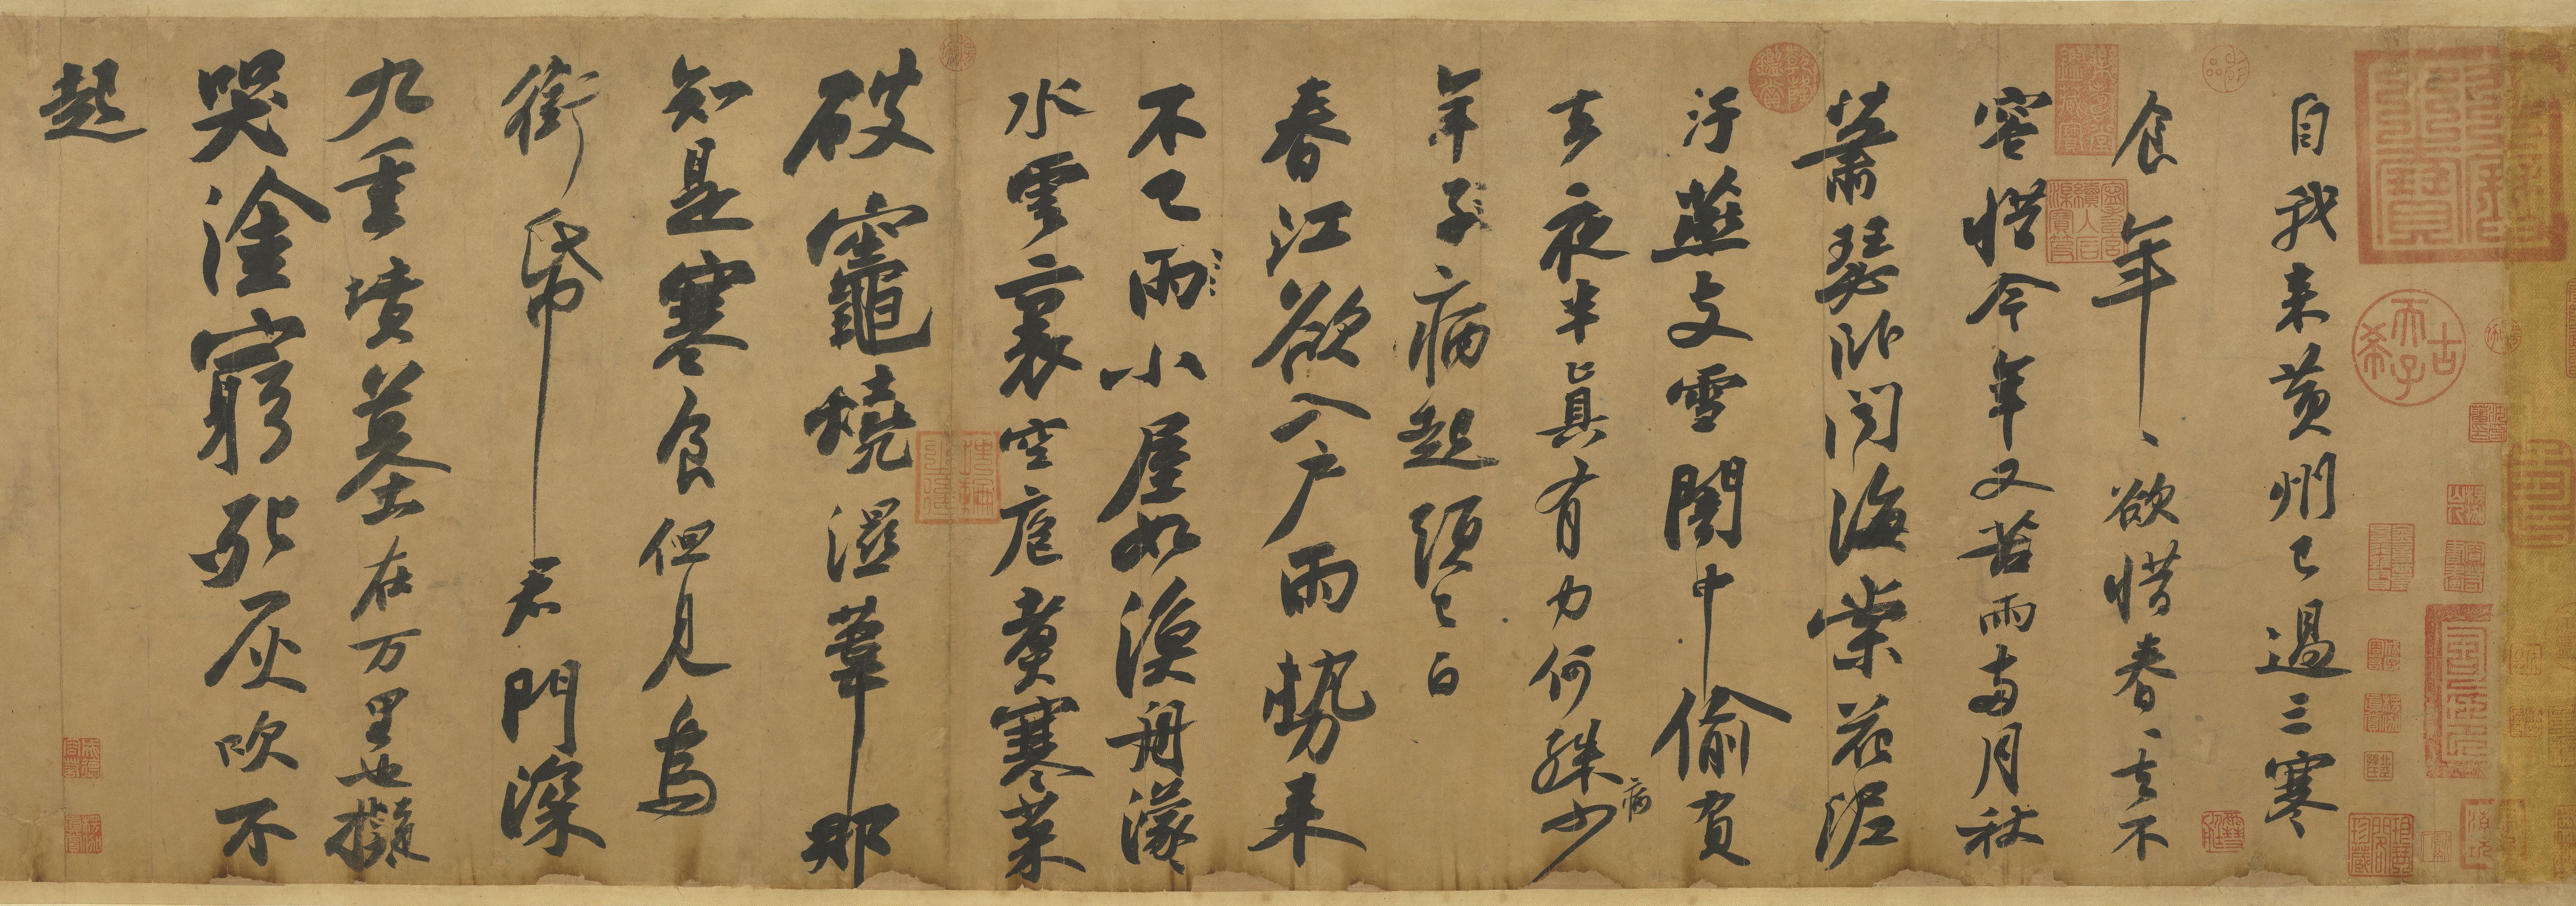 自我来黄州已過三寒
食年〻欲惜春〻去不
容惜今年又苦雨兩月秋
蕭瑟卧聞海棠花泥
汙燕支雪闇中偷負
去夜半真有力何殊病少
年子病起頭已白
春江欲入户雨勢来
不已雨小屋如漁舟濛〻
水雲裏空庖煮寒菜
破竈燒濕葦那
知是寒食但見烏
銜帋君門深
九重墳墓在万里也擬
哭塗窮死灰吹不
起
古希天子
乾隆鑑賞